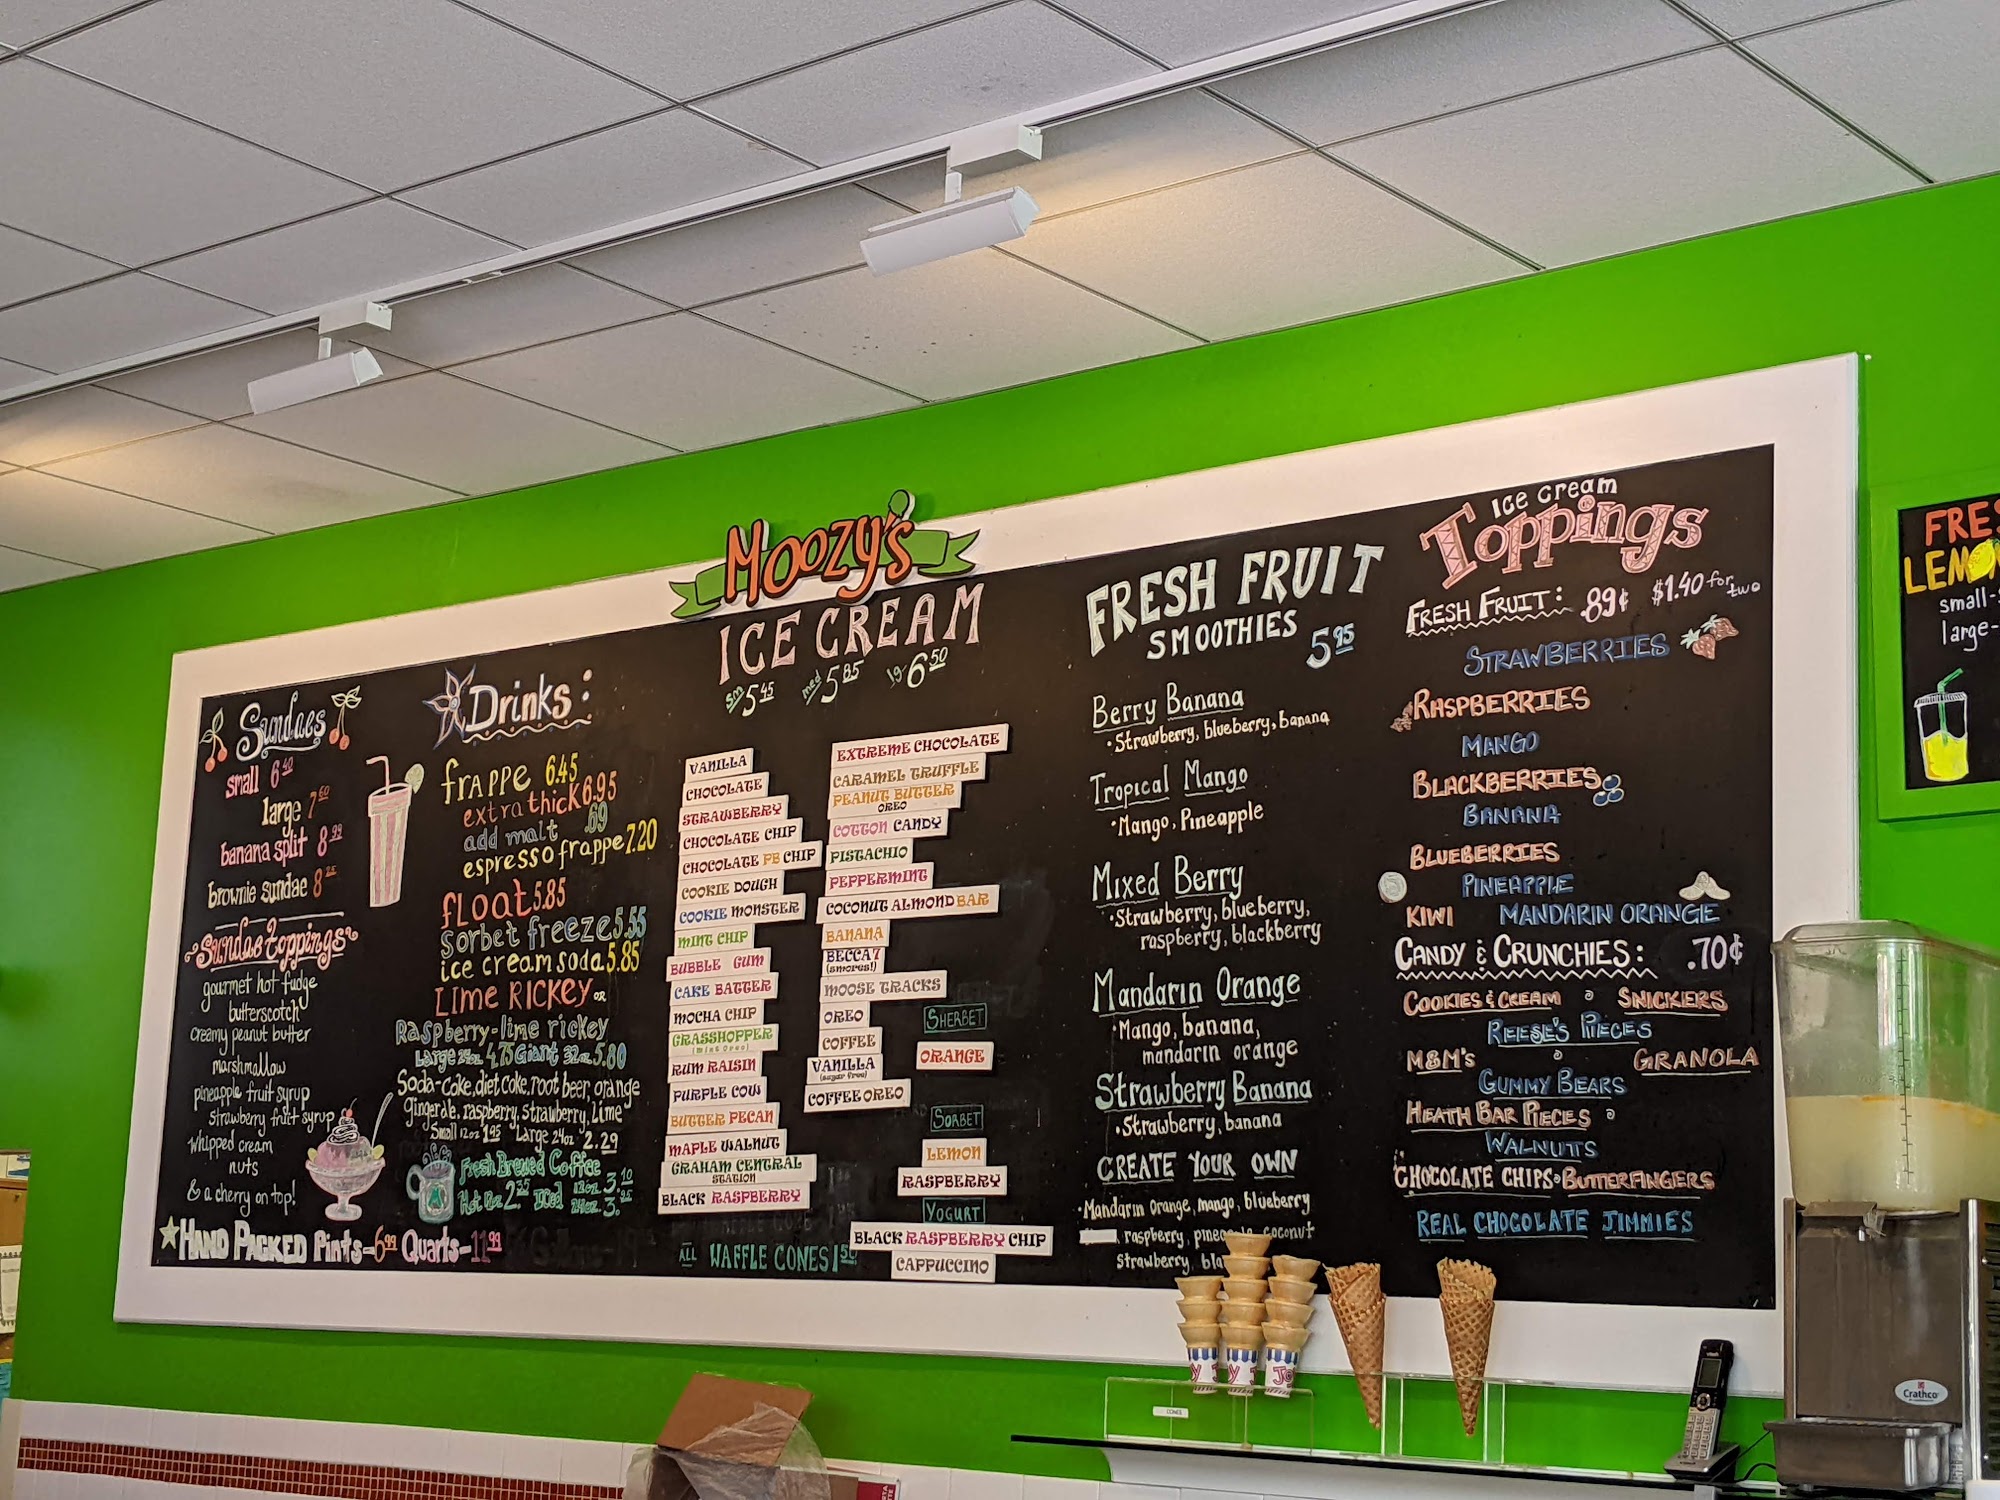 Moozy's
Sundaes
small 6
large 7
banana split 8.99
brownie sundae 8
Sundae toppings
gourmet hot fudge
butterscotch
creamy peanut butter
marshmallow
pineapple fruit syrup
strawberry fruit syrup
whipped cream
nuts
& a cherry on top!
HAND PACKED Pints-6.99 Quarts-11.99
Drinks:
frappe 6.45
extra thick 6.95
add malt .69
espresso frappe 7.20
float 5.85
sorbet freeze 5.55
ice cream soda 5.85
LIME RICKEY OR
Raspberry-lime rickey
Large 24oz. 4.75 Giant 32oz. 5.80
Soda-coke, diet coke, root beer, orange
gingerale, raspberry, strawberry, lime
Small 12oz 1.95 Large 24oz 2.29
Fresh Brewed Coffee
Hot 2.35 Iced 3.10
24oz. 3.
ICE CREAM
sm 5.45 med 5.85 lg 6.50
VANILLA
CHOCOLATE
STRAWBERRY
CHOCOLATE CHIP
CHOCOLATE PB CHIP
COOKIE DOUGH
COOKIE MONSTER
MINT CHIP
BUBBLE GUM
CAKE BATTER
MOCHA CHIP
GRASSHOPPER
(mint Oreo)
RUM RAISIN
PURPLE COW
BUTTER PECAN
MAPLE WALNUT
GRAHAM CENTRAL
STATION
BLACK RASPBERRY
ALL WAFFLE CONES 1.50
EXTREME CHOCOLATE
CARAMEL TRUFFLE
PEANUT BUTTER
OREO
COTTON CANDY
PISTACHIO
PEPPERMINT
COCONUT ALMOND BAR
BANANA
BECCA 7
(smores!)
MOOSE TRACKS
OREO
COFFEE
VANILLA
(sugar free)
COFFEE OREO
SHERBET
ORANGE
SORBET
LEMON
RASPBERRY
YOGURT
BLACK RASPBERRY CHIP
CAPPUCCINO
FRESH FRUIT
SMOOTHIES 5.95
Berry Banana
• Strawberry, blueberry, banana
Tropical Mango
• Mango, Pineapple
Mixed Berry
• Strawberry, blueberry,
raspberry, blackberry
Mandarin Orange
• Mango, banana,
mandarin orange
Strawberry Banana
• Strawberry, banana
CREATE YOUR OWN
• Mandarin orange, mango, blueberry
, raspberry, coconut
Strawberry,
Ice Cream
Toppings
FRESH FRUIT: .89¢ $1.40 for two
STRAWBERRIES
RASPBERRIES
MANGO
BLACKBERRIES
BANANA
BLUEBERRIES
PINEAPPLE
KIWI MANDARIN ORANGE
CANDY & CRUNCHIES: .70¢
COOKIES & CREAM • SNICKERS
REESE'S PIECES
M&M'S • GRANOLA
GUMMY BEARS
HEATH BAR PIECES •
WALNUTS
CHOCOLATE CHIPS • BUTTERFINGERS
REAL CHOCOLATE JIMMIES
small-
large-
CONES
Crathco